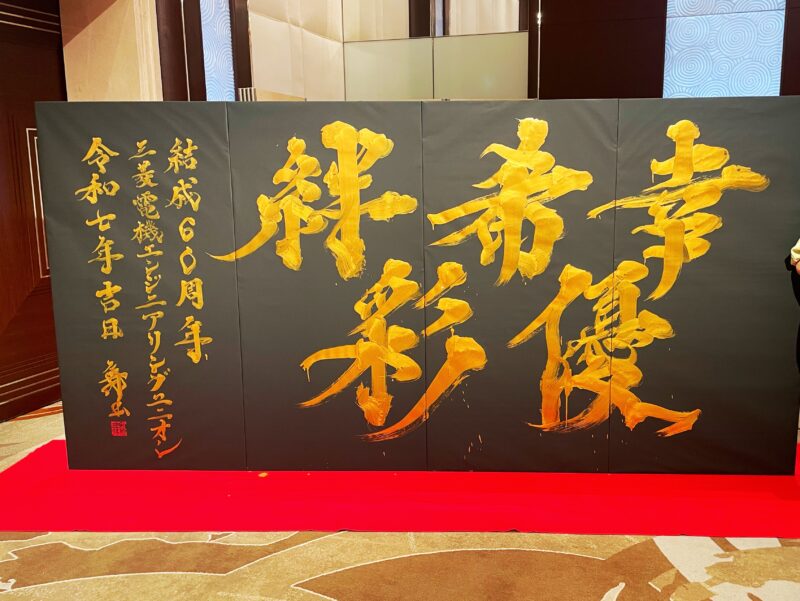 幸
優
希
絆
彩
結成60周年
三菱電機エンジニアリングユニオン
令和七年吉日